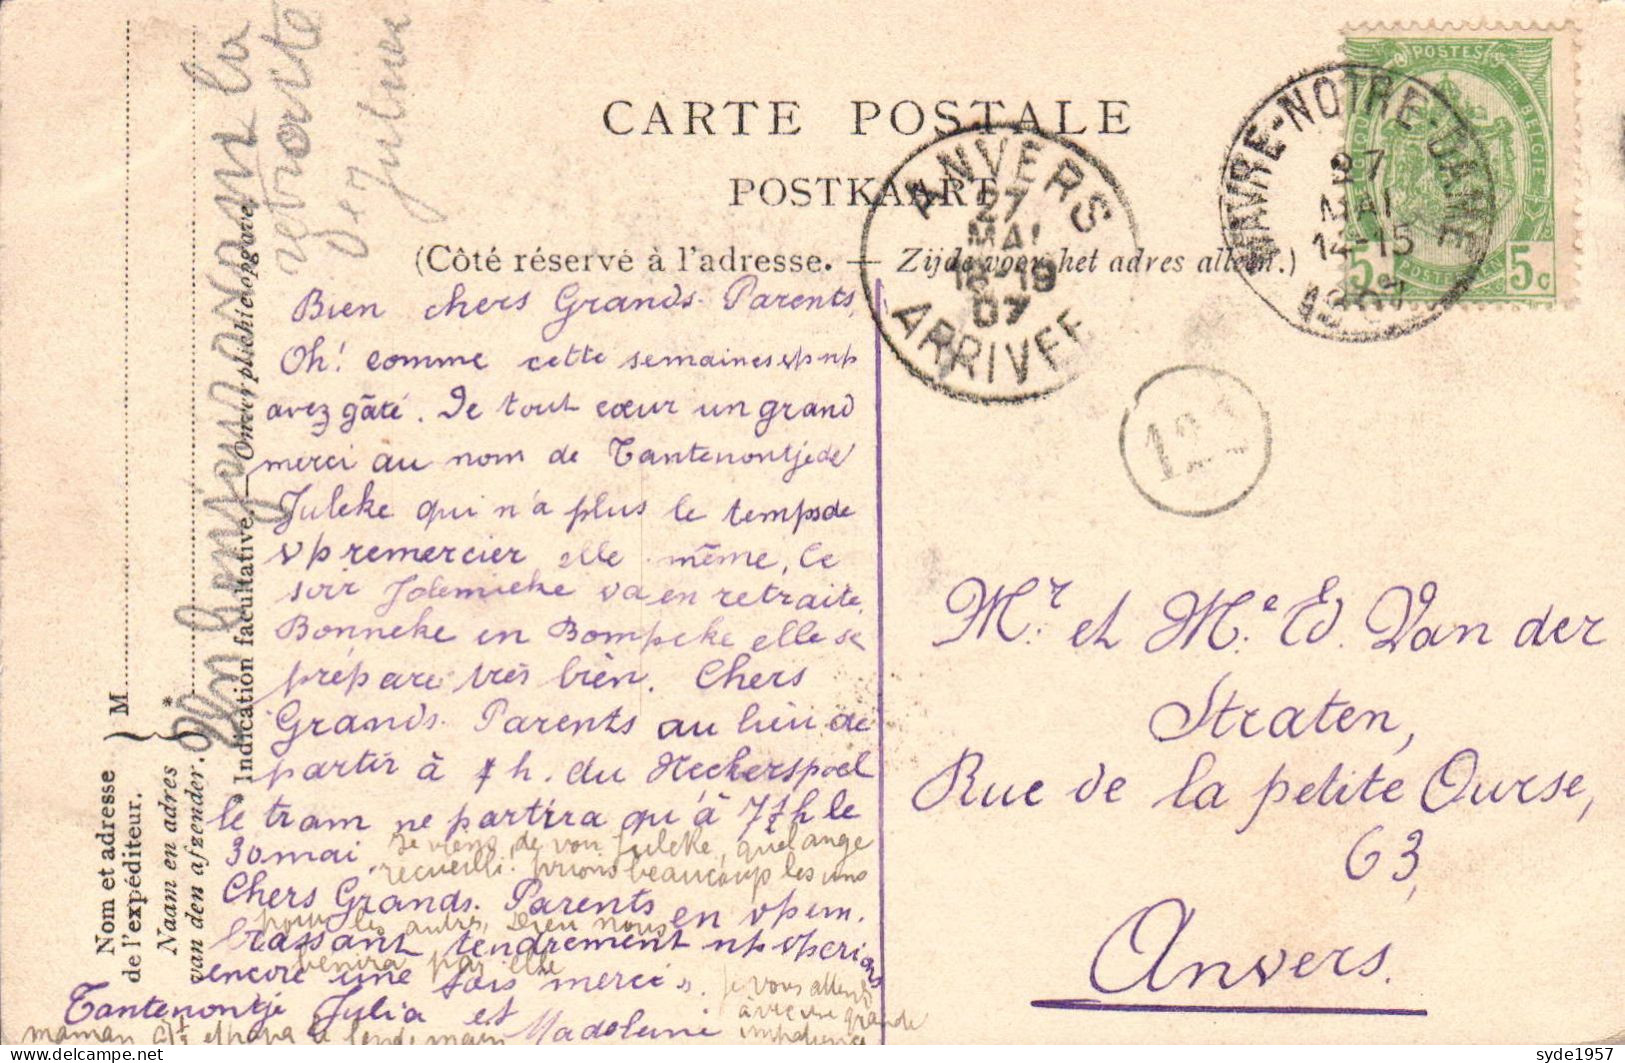 CARTE POSTALE
POSTKAART
(Côté réservé à l'adresse. — Zijde voor het adres alleen.)
ANVERS
27
MAI
18-19
07
ARRIVÉE
WAVRE-NOTRE-DAME
27
MAI
14-15
1907
POSTES
BELGIQUE
BELGIË
POSTERIJEN
5c 5c
Nom et adresse
de l'expéditeur.
Naam en adres
van den afzender.
M
* Indication facultative. — Onverplichte opgave.
Un bonjour avant la
retraite
de Juliua
Bien chers Grands-Parents,
Oh! comme cette semaine svp np
avez gâté. De tout cœur un grand
merci au nom de Tantenontje de
Juleke qui n'a plus le temps de
vp remercier elle même, ce
soir Jolemieke va en retraite,
Bonneke en Bompeke elle se
prépare très bien. Chers
Grands-Parents au lieu de
partir à 7 h. du Neckerspoel
le tram ne partira qu'à 7½ h le
30 mai
Je viens de voir Juleke, quel ange
recueilli. prions beaucoup les uns
pour les autres, Dieu nous
benira par elle
Chers Grands-Parents en vp em.
brassant tendrement np vp crions
encore une fois merci.
Tantenontje Julia et Madeleine
je vous attend
avec une grande
impatience
maman et papa le lendemain
Mr. et Me. Ed. Van der
Straten,
Rue de la petite Ourse,
63,
Anvers.
syde1957